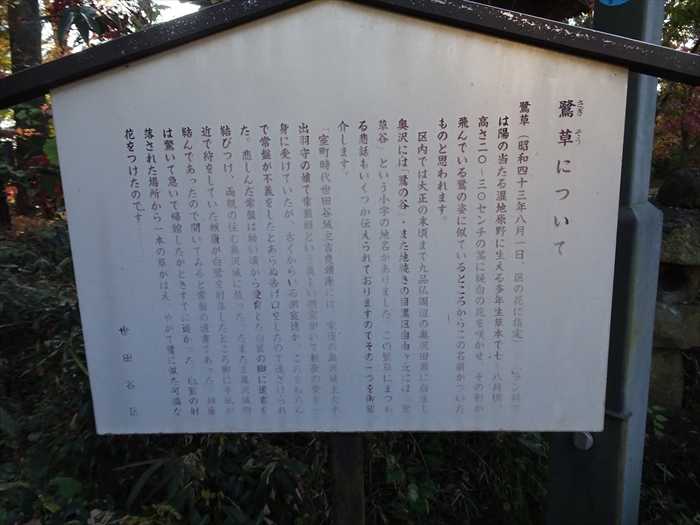 鷺草について
さぎ そう
鷺草（昭和四十三年八月一日 区の花に指定）
は陽の当たる湿地原野に生える多年生草本で七〜八月頃
高さ二〇〜三〇センチの茎に純白の花を咲かせ その形が
飛んでいる鷺の姿に似ているところからこの名前がついた
ものと思われます。
区内では大正の末頃まで九品仏周辺の奥沢田圃に自生し
奥沢には 鷺の谷 また地続きの目黒区自由ヶ丘には 鷺
草谷 という小字の地名がありました この鷺草にまつわ
る悲話もいくつか伝えられておりますのでその一つを御紹
介します。
室町時代世田谷城主吉良頼康には 奥沢城主大平
出羽守の娘で常盤姫という美しい側室がいて頼康の愛を一
身に受けていたが 古くからいる側室達が これをねたん
で常盤が不義をしたとあらぬ告げ口をしたので遠ざけられ
た。悲しんだ常盤は幼い頃から愛育した白鷺の脚に遺書を
結びつけ 両親の住む奥沢城に放った。たまたま奥沢城附
近で狩をしていた頼康が白鷺を射落したところ脚に手紙が
結んであったので開いてみると常盤の遺書であった 頼康
は驚いて急いで帰館したがときすでに遅かった 白鷺の射
落された場所から一本の草がはえ やがて鷺に似た可憐な
花をつけたのです
世田谷区